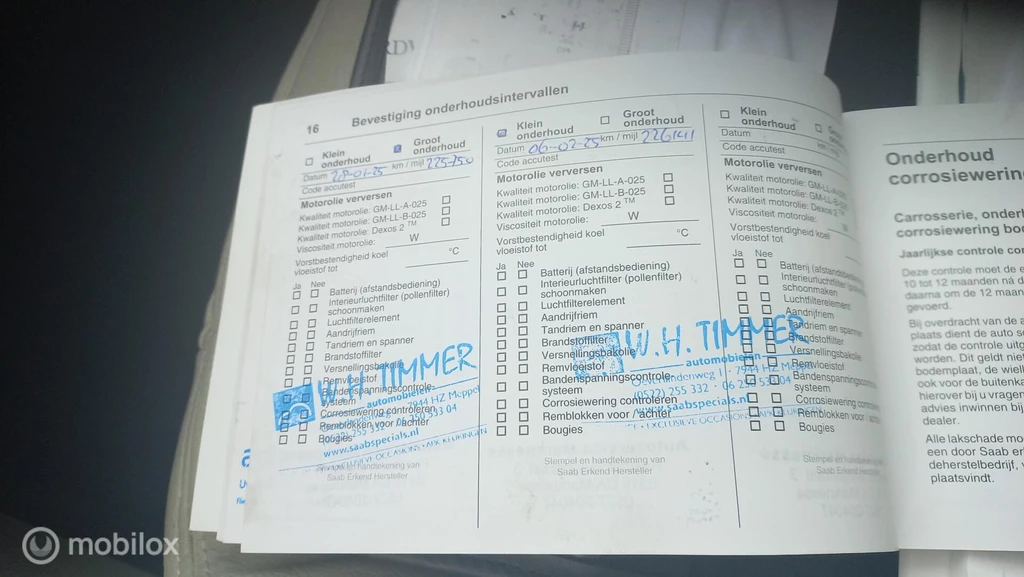 16 Bevestiging onderhoudsintervallen
Klein onderhoud
Groot onderhoud
Datum 28-01-25 km / mijl 225-750
Code accutest
Motorolie verversen
Kwaliteit motorolie: GM-LL-A-025
Kwaliteit motorolie: GM-LL-B-025
Kwaliteit motorolie: Dexos 2 ™
Viscositeit motorolie: W
Vorstbestendigheid koel
vloeistof tot °C
Ja Nee
Batterij (afstandsbediening)
Interieurluchtfilter (pollenfilter)
schoonmaken
Luchtfilterelement
Aandrijfriem
Tandriem en spanner
Brandstoffilter
Versnellingsbakolie
Remvloeistof
Bandenspanningscontrole-
systeem
Corrosiewering controleren
Remblokken voor / achter
Bougies
W.H. TIMMER
automobielen
7944 HZ Meppel
(0522) 255 332
www.saabspecials.nl
EXCLUSIVE OCCASIONS • APK KEURINGEN
Stempel en handtekening van
Saab Erkend Hersteller
Klein
onderhoud
Groot
onderhoud
Datum 06-02-25 km / mijl
Code accutest
Motorolie verversen
Kwaliteit motorolie: GM-LL-A-025
Kwaliteit motorolie: GM-LL-B-025
Kwaliteit motorolie: Dexos 2 ™
Viscositeit motorolie: W
Vorstbestendigheid koel
vloeistof tot °C
Ja Nee
Batterij (afstandsbediening)
Interieurluchtfilter (pollenfilter)
schoonmaken
Luchtfilterelement
Aandrijfriem
Tandriem en spanner
Brandstoffilter
Versnellingsbakolie
Remvloeistof
Bandenspanningscontrole-
systeem
Corrosiewering controleren
Remblokken voor / achter
Bougies
W.H. TIMMER
automobielen
7944 HZ Meppel
(0522) 255 332
www.saabspecials.nl
EXCLUSIVE OCCASIONS
Stempel en handtekening van
Saab Erkend Hersteller
Klein
onderhoud
Datum
Code accutest
Motorolie verversen
Kwaliteit motorolie: GM-LL-A-025
Kwaliteit motorolie: GM-LL-B-025
Kwaliteit motorolie: Dexos 2
Viscositeit motorolie:
Vorstbestendigheid koel
vloeistof tot
Ja Nee
Batterij (afstandsbed
Interieurluchtfilter (p
schoonmaken
Luchtfilterelement
Aandrijfriem
Tandriem en spanne
Brandstoffilter
Versnellingsbakolie
Remvloeistof
Bandenspannings
systeem
Corrosiewering
Remblokken voor
Bougies
Stempel en handtekening
Saab Erkend Hersteller
Onderhoud
corrosiewerin
Carrosserie, onderh
corrosiewering bo
Jaarlijkse controle co
Deze controle moet de e
10 tot 12 maanden ná d
daarna om de 12 maan
gevoerd.
Bij overdracht van de a
plaats dient de auto s
zodat de controle uitg
worden. Dit geldt niet
bodemplaat, de wiell
ook voor de buitenka
hierover bij u vragen
advies inwinnen bij
dealer.
Alle lakschade mo
een door Saab er
deherstelbedrijf, v
plaatsvindt.
mobilox